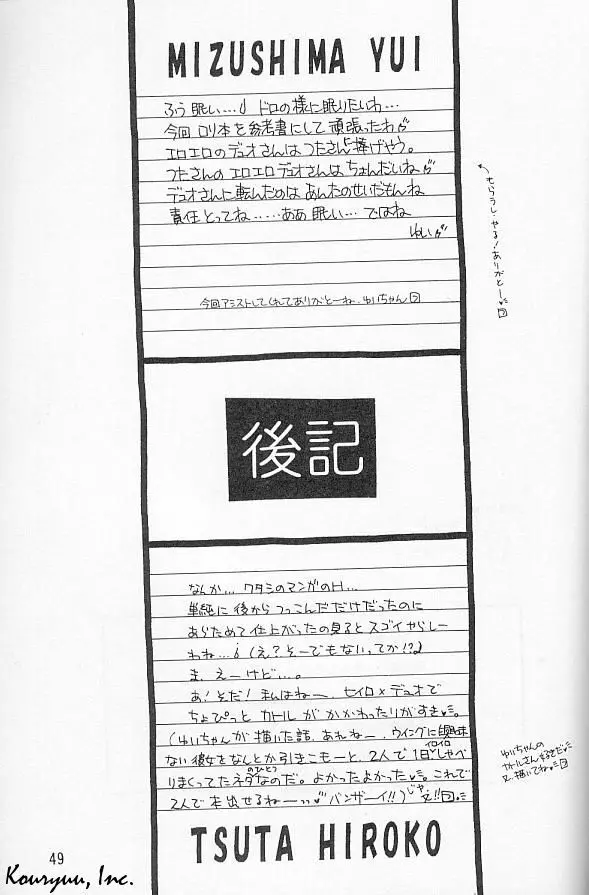 MIZUSHIMA YUI
ふう 眠い…。ドロの様に眠りたいわ…
今回 ロリ本を参考書にして頑張ったわ
エロエロのデュオさんはつたさんに捧げやう。
つたさんのエロエロデュオさんはちょんだいね
デュオさんに転んだのはあんたのせいだもんね
責任とってね……ああ 眠い… ではね
ゆい
今回アシストしてくれてありがとーね、ゆいちゃん
ありがとー
後記
なんか… ワタシのマンガのH…
単純に後からつっこんだだけだったのに
あらためて仕上がったの見るとスゴイやらしー
わね…。(え？そーでもないってか!?)
ま、えーけど…。
あ！そだ！私はねー、セイロ×デュオで
ちょぴっと カトル がかかわったりがすき
(ゆいちゃんが描いた話、あれねー、ウイングに興味
ない彼女をなんとか引きこもーと、2人で1日イロイロしゃべ
りまくってたネタなのだ。よかったよかった。これで
2人で本出せるねーっっ バンザーイ!!)じゃ、又!!
ゆいちゃんの
カトルさん好きだ
又、描いてね
TSUTA HIROKO
49
Kouryuu, Inc.